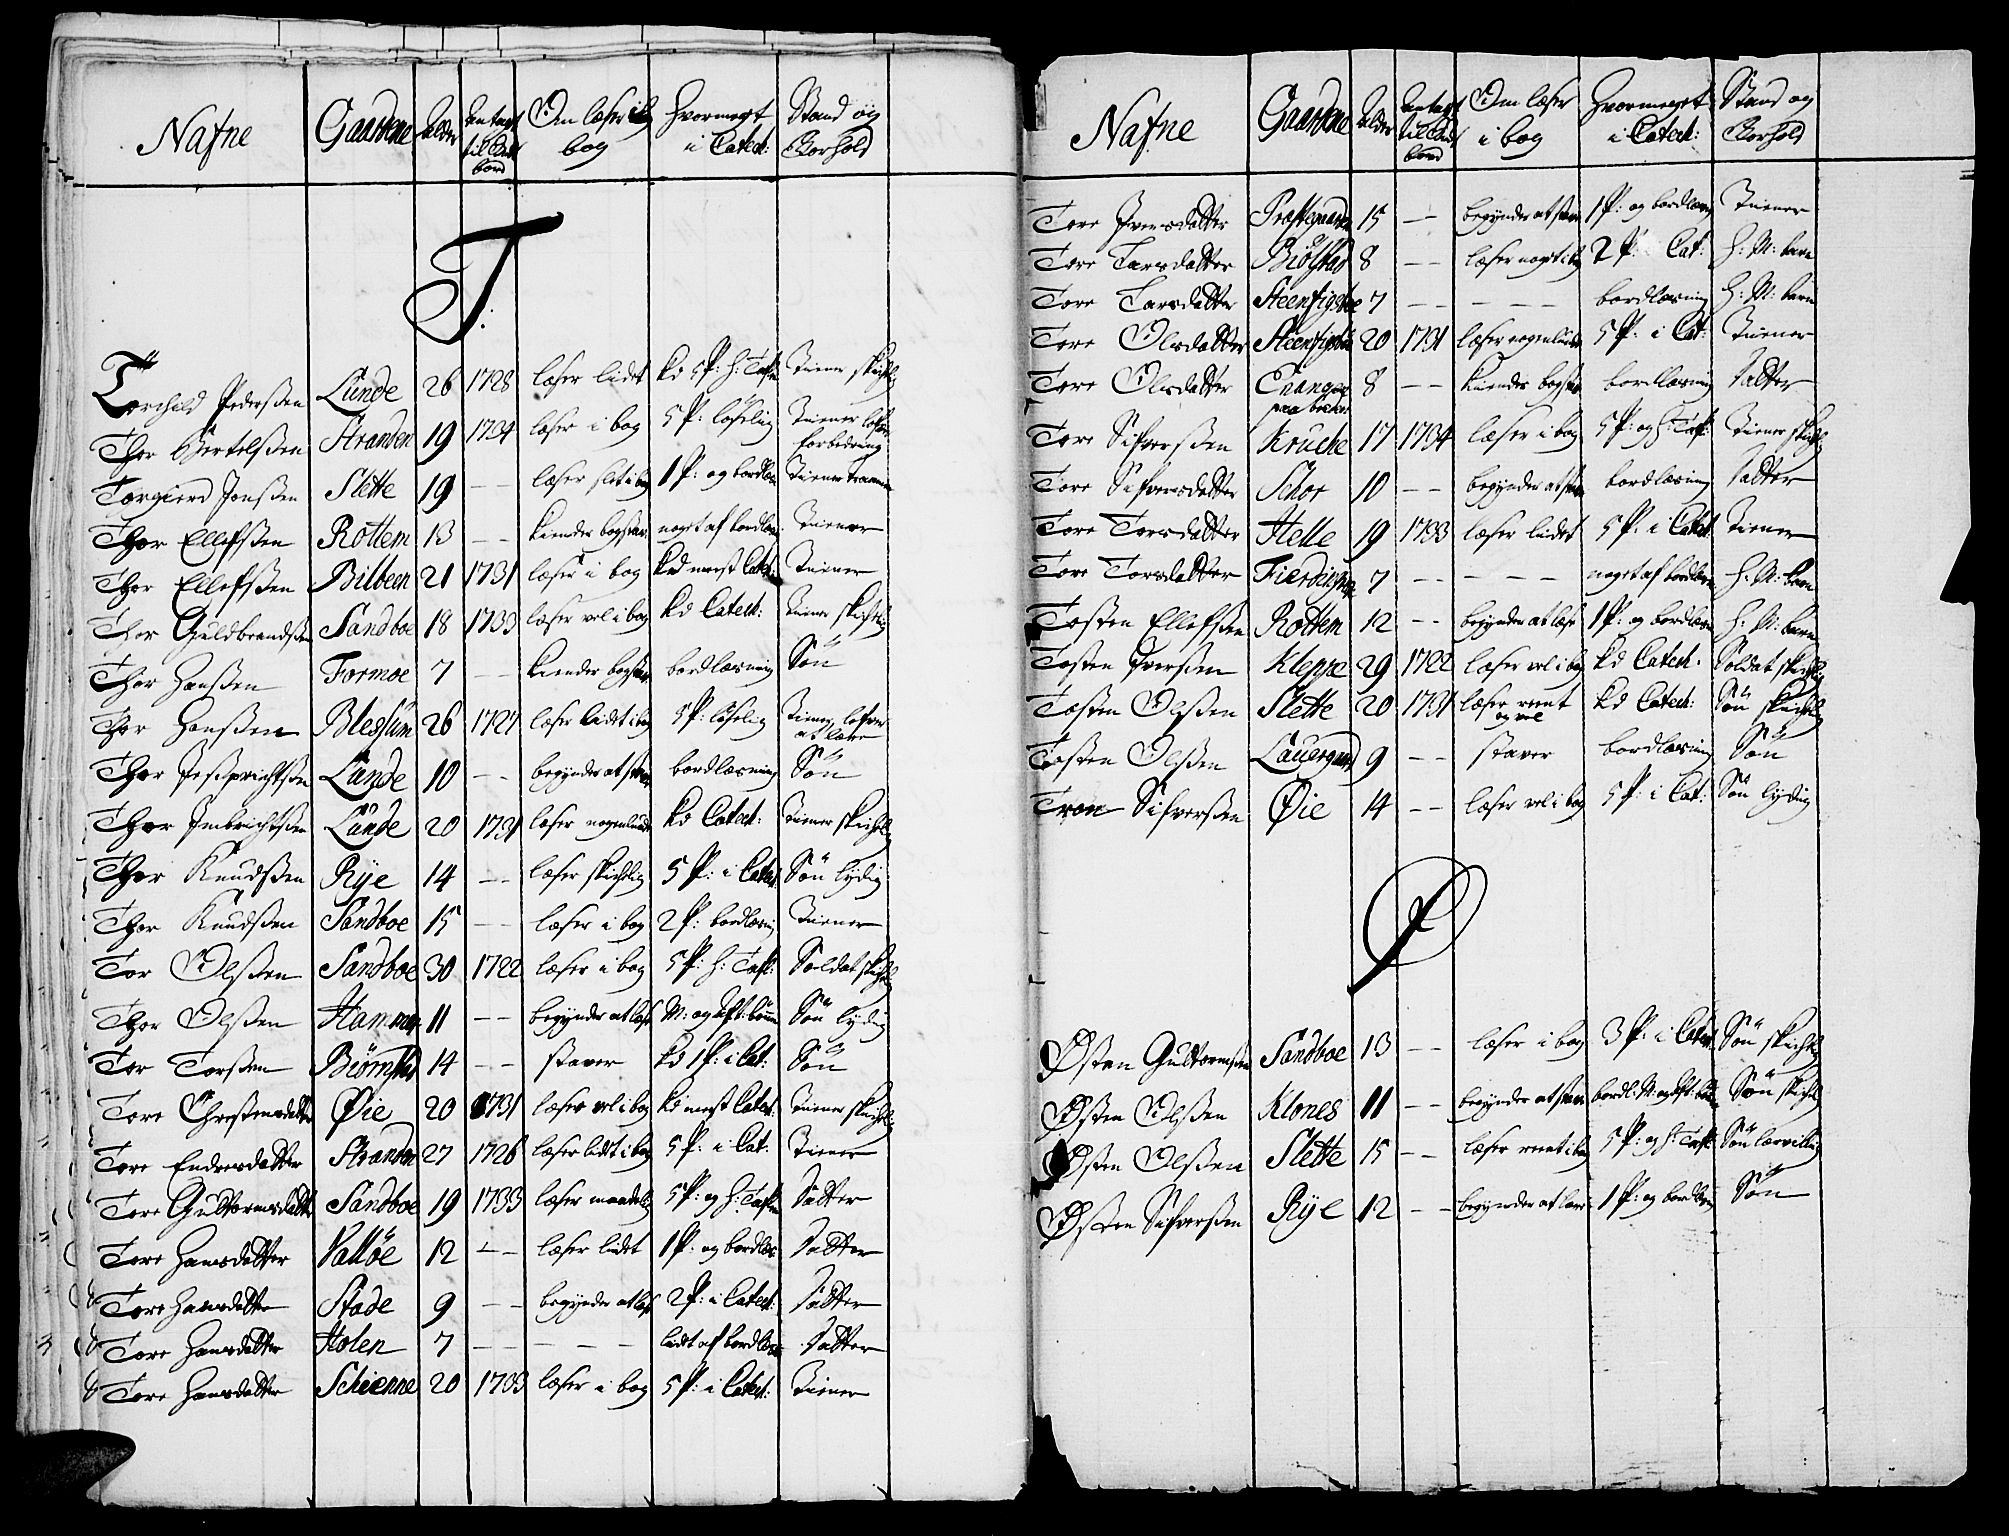 Nafne Gaardene Alder Antagt til Guds bord Om læser i bog Hvormeget i Catech: Stand og Forhold
T.
Torchild Pedersßen Lunde 26 1728 læser lidet kd 5 P: H: Tafle Tiener skichelig
Thor Bertelsßen Stranden 19 1734 læser i bog 5 P: løselig Tiener lofver forbedring
Torgierd Jonsßen Slette 19 -- læser slet i bog 1 P: og bordlæs: Tiener
Thor Ellefsßen Rottem 13 -- kiender bogstav: noget af bordlæs: Tiener
Thor Ellefsßen Bilbeen 21 1731 læser i bog kd meest Catec: Tiener
Thor Guldbrandsßen Sandboe 18 1733 læser vel i bog kd Catech: Tiener skichelig
Thor Hansßen Formoe 7 -- kiender bogstav: bordlæsning Søn
Thor Hansßen Blessum 26 1727 læser lidet i bog 5 P: løselig Tiener, lofver at lære
Thor Lunde 10 -- begynder at stave bordlæsning Søn
Thor Lunde 20 1731 læser nogenlunde kd Catech: Tiener skichelig
Thor Knudsßen Rye 14 -- læser skichelig 5 P: i Catec: Søn lydig
Thor Knudsßen Sandboe 15 -- læser i bog 2 P: bordlæsning Tiener
Tor Olsßen Sandboe 30 1722 læser i bog 5 P: H: Tafl: Soldat skichelig
Thor Olsßen Hammer 11 -- begynder at læse M: og Aft: bønn Søn lydig
Tor Torsßen Biørnstad 14 -- staver kd 1 P: i Cat: Søn
Tore Chrestensdatter Øie 20 1731 læser vel i bog kd meest Catec: Tiener skichelig
Tore Endresdatter Stranden 27 1726 læser lidt i bog 5 P: i Cat: Tiener
Tore Guttormsdatter Sandboe 19 1733 læser maadelig 5 P: og H: Tafle Datter
Tore Hansdatter Valløe 12 -- læser lidet 1 P: og bordlæs: Datter
Tore Hansdatter Stade 9 -- begynder at læse 2 P: i Catech: Datter
Tore Hansdatter Holen 7 -- -- lidt af bordlæs: Datter
Tore Hansdatter Schienne 20 1733 læser i bog 5 P: i Catech: Tiener
Nafne Gaardene Alder Antagt til Guds bord Om læser i bog Hvormeget i Catech: Stand og Forhold
Tore Iversdatter Præstegaarden 15 -- begynder at stave 1 P: og bordlæsn: Tiener
Tore Larsdatter Biølstad 8 -- læser noget i bog 2 P: Cat: H: M: barn
Tore Larsdatter Steenfigstue 7 -- -- bordlæsning H: M: barn
Tore Olsdatter Steenfigstue 20 1731 læser nogenlunde 5 P: i Cat: Tiener
Tore Olsdatter 8 -- kiender bogstav: bordlæsning Datter
Tore Sifversßen Kruche 17 1734 læser i bog 5 P: og H: Tafl: Tiener skichelig
Tore Sifversdatter Schor 10 -- begynder at stave bordlæsning Datter
Tore Torsdatter Helle 19 1733 læser lidet 5 P: i Catech: Tiener
Tore Torsdatter 7 -- -- noget af bordlæsn: H: M: barn
Tosten Ellefsßen Rottem 12 -- begynder at læse 1 P: og bordlæsn: H: M: barn
Tosten Iversßen Kleppe 29 1722 læser vel i bog kd Catech: Soldat skichelig
Tosten Olsßen Slette 20 1731 læser reent og vel kd Catech: Søn skichelig
Tosten Olsßen Lauergaard 9 -- staver bordlæsning Søn
Tron Sifversßen Øie 14 -- læser vel i bog 5 P: i Cat: Søn lydig
Ø
Østen Guttormsßen Sandboe 13 -- læser i bog 3 P: i Catec: Søn skichelig
Østen Olsßen Klones 11 -- begynder at stave bordl: M: og Aft: bøn Søn skichelig
Østen Olsßen Slette 15 -- læser reent i bog 5 P: og H: Tafl: Søn lærvillig
Østen Sifversßen Rye 12 -- begynder at læse 1 P: og bordlæsn: Søn